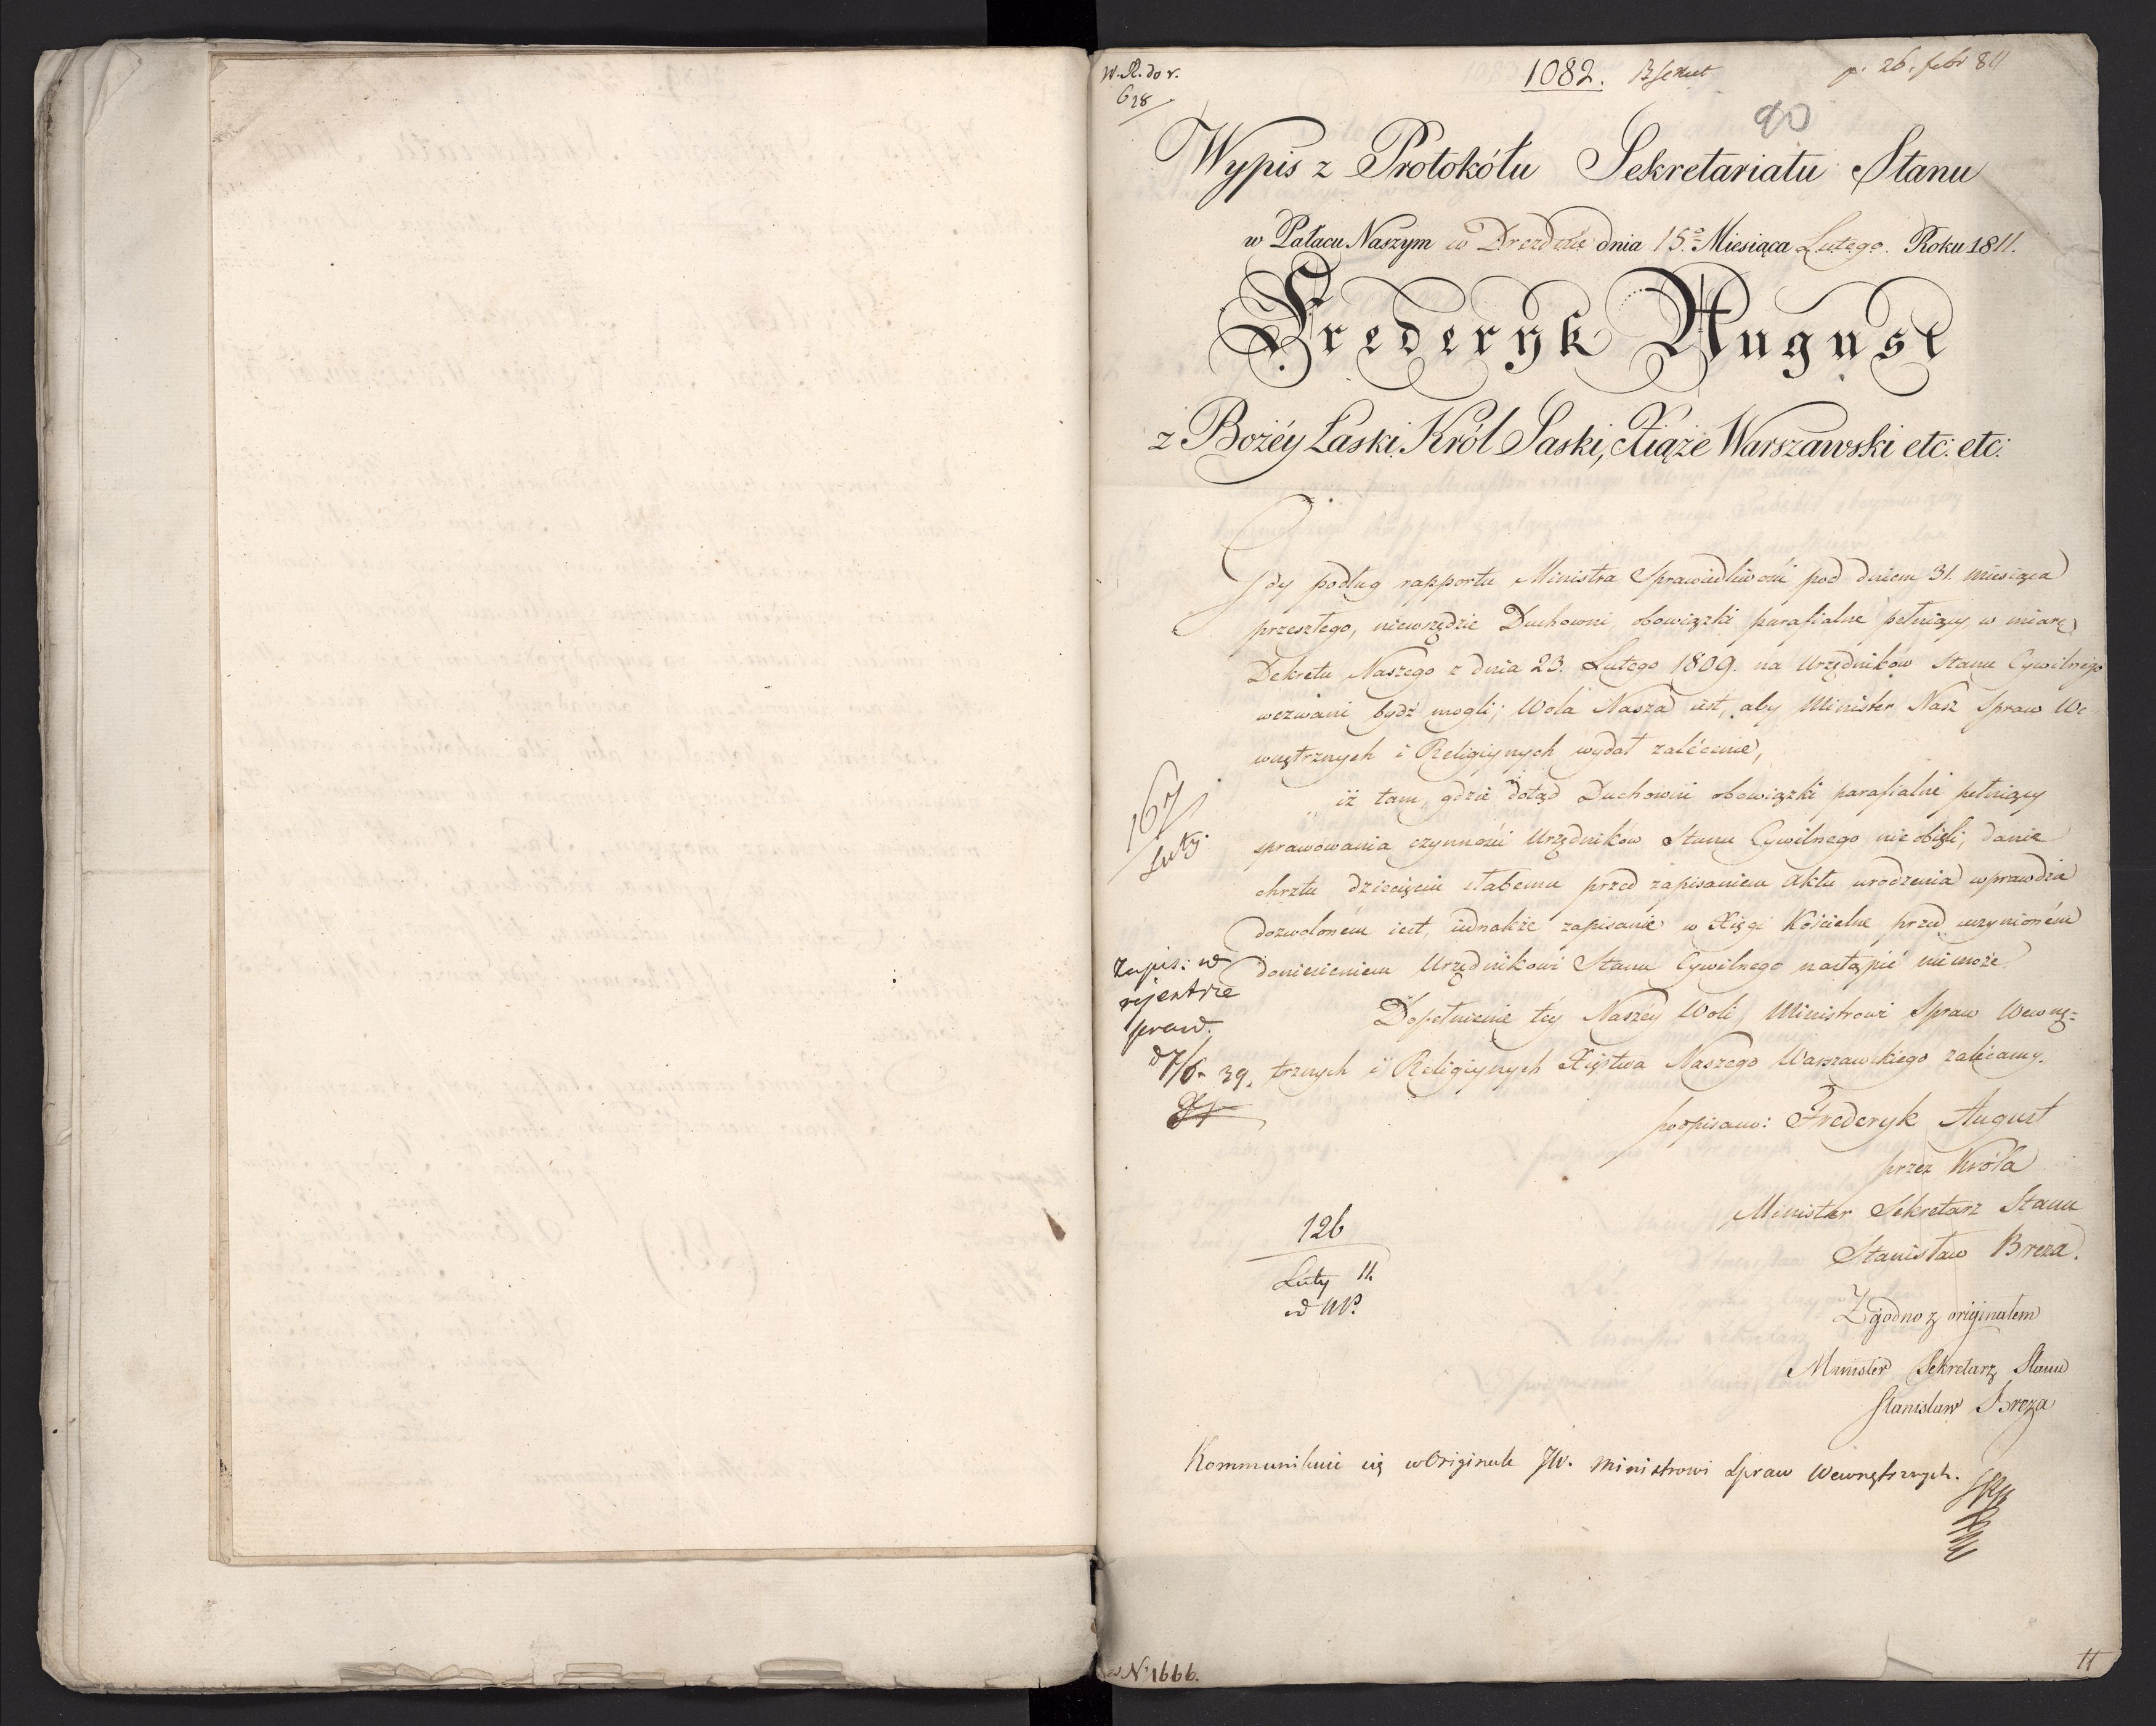 W. R. do r.
628
1082.
p. 26. febr 811
90
Wypis z Protokółu Sekretariatu Stanu
w Pałacu Naszym w Dreznie dnia 15º Miesiąca Lutego. Roku 1811.
Frederyk August
z Bożéy Łaski Król Saski, Xiąże Warszawski etc: etc:
Gdy podług rapportu Ministra Sprawiedliwości pod dniem 31. miesiąca
przeszłego, niewszędzie Duchowni obowiązki parafialne pełniący, w miarę
Dekretu Naszego z dnia 23. Lutego 1809. na Urzędników Stanu Cywilnego
wezwani bydź mogli; Wola Nasza iest, aby Minister Nasz Spraw We
wnętrznych i Religiynych wydał zalécenie,
iż tam, gdzie dotąd Duchowni obowiązki parafialne pełniący
sprawowania czynności Urzędników Stanu Cywilnego nie obięli, danie
chrztu dziecięciu słabemu przed zapisaniem Aktu urodzenia wprawdzie
dozwolonem iest, iednakże zapisanie w Xięgi Kościelne przed uczynioném
doniesieniem Urzędnikowi Stanu Cywilnego nastąpić nie może.
Dopełnienie téy Naszéy Woli Ministrowi Spraw Wewnę=
trznych i Religiynych Xięstwa Naszego Warszawskiego zalecamy.
167
Luty
Zapis: w
rejestrze
praw.
d 7/6 39.
podpisano: Frederyk August
przez Króla
Minister Sekretarz Stanu
Stanisław Breza.
126
Luty 11.
Zgodno z originałem
Minister Sekretarz Stanu
Stanisław Breza
Kommunikuie się w Originale JW. Ministrowi Spraw Wewnętrznych.
N. 1666.
11